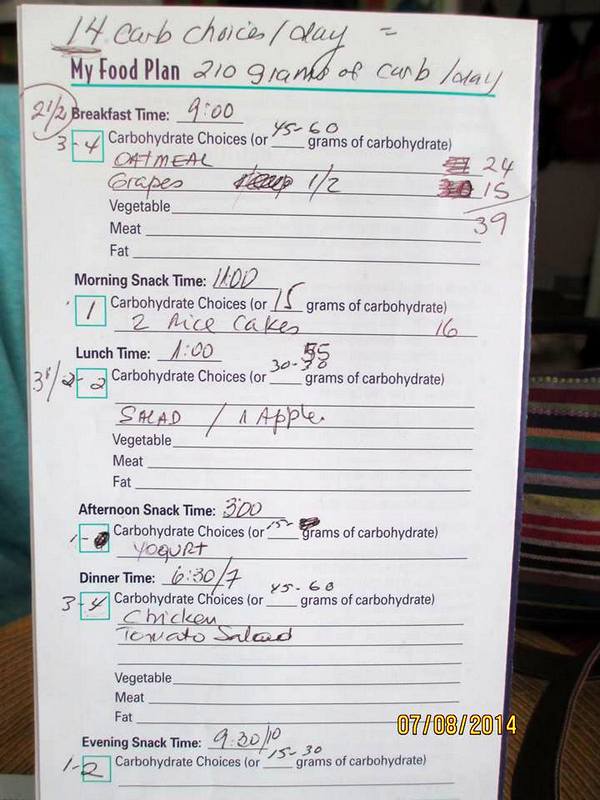 14 carb choices/day =
My Food Plan 210 grams of carb/day
2 1/2 Breakfast Time: 9:00
45-60
3-4 Carbohydrate Choices (or ___ grams of carbohydrate)
OATMEAL 24
Grapes 1/2 15
Vegetable 39
Meat
Fat
Morning Snack Time: 11:00
1 Carbohydrate Choices (or 15 grams of carbohydrate)
2 Rice Cakes 16
Lunch Time: 1:00
2 Carbohydrate Choices (or ___ grams of carbohydrate)
SALAD / 1 Apple
Vegetable
Meat
Fat
Afternoon Snack Time: 3:00
1- Carbohydrate Choices (or 15- grams of carbohydrate)
YOGURT
Dinner Time: 6:30/7
45-60
3-4 Carbohydrate Choices (or ___ grams of carbohydrate)
Chicken
Tomato Salad
Vegetable
Meat
Fat
07/08/2014
Evening Snack Time: 9:30/10
15-30
1-2 Carbohydrate Choices (or ___ grams of carbohydrate)